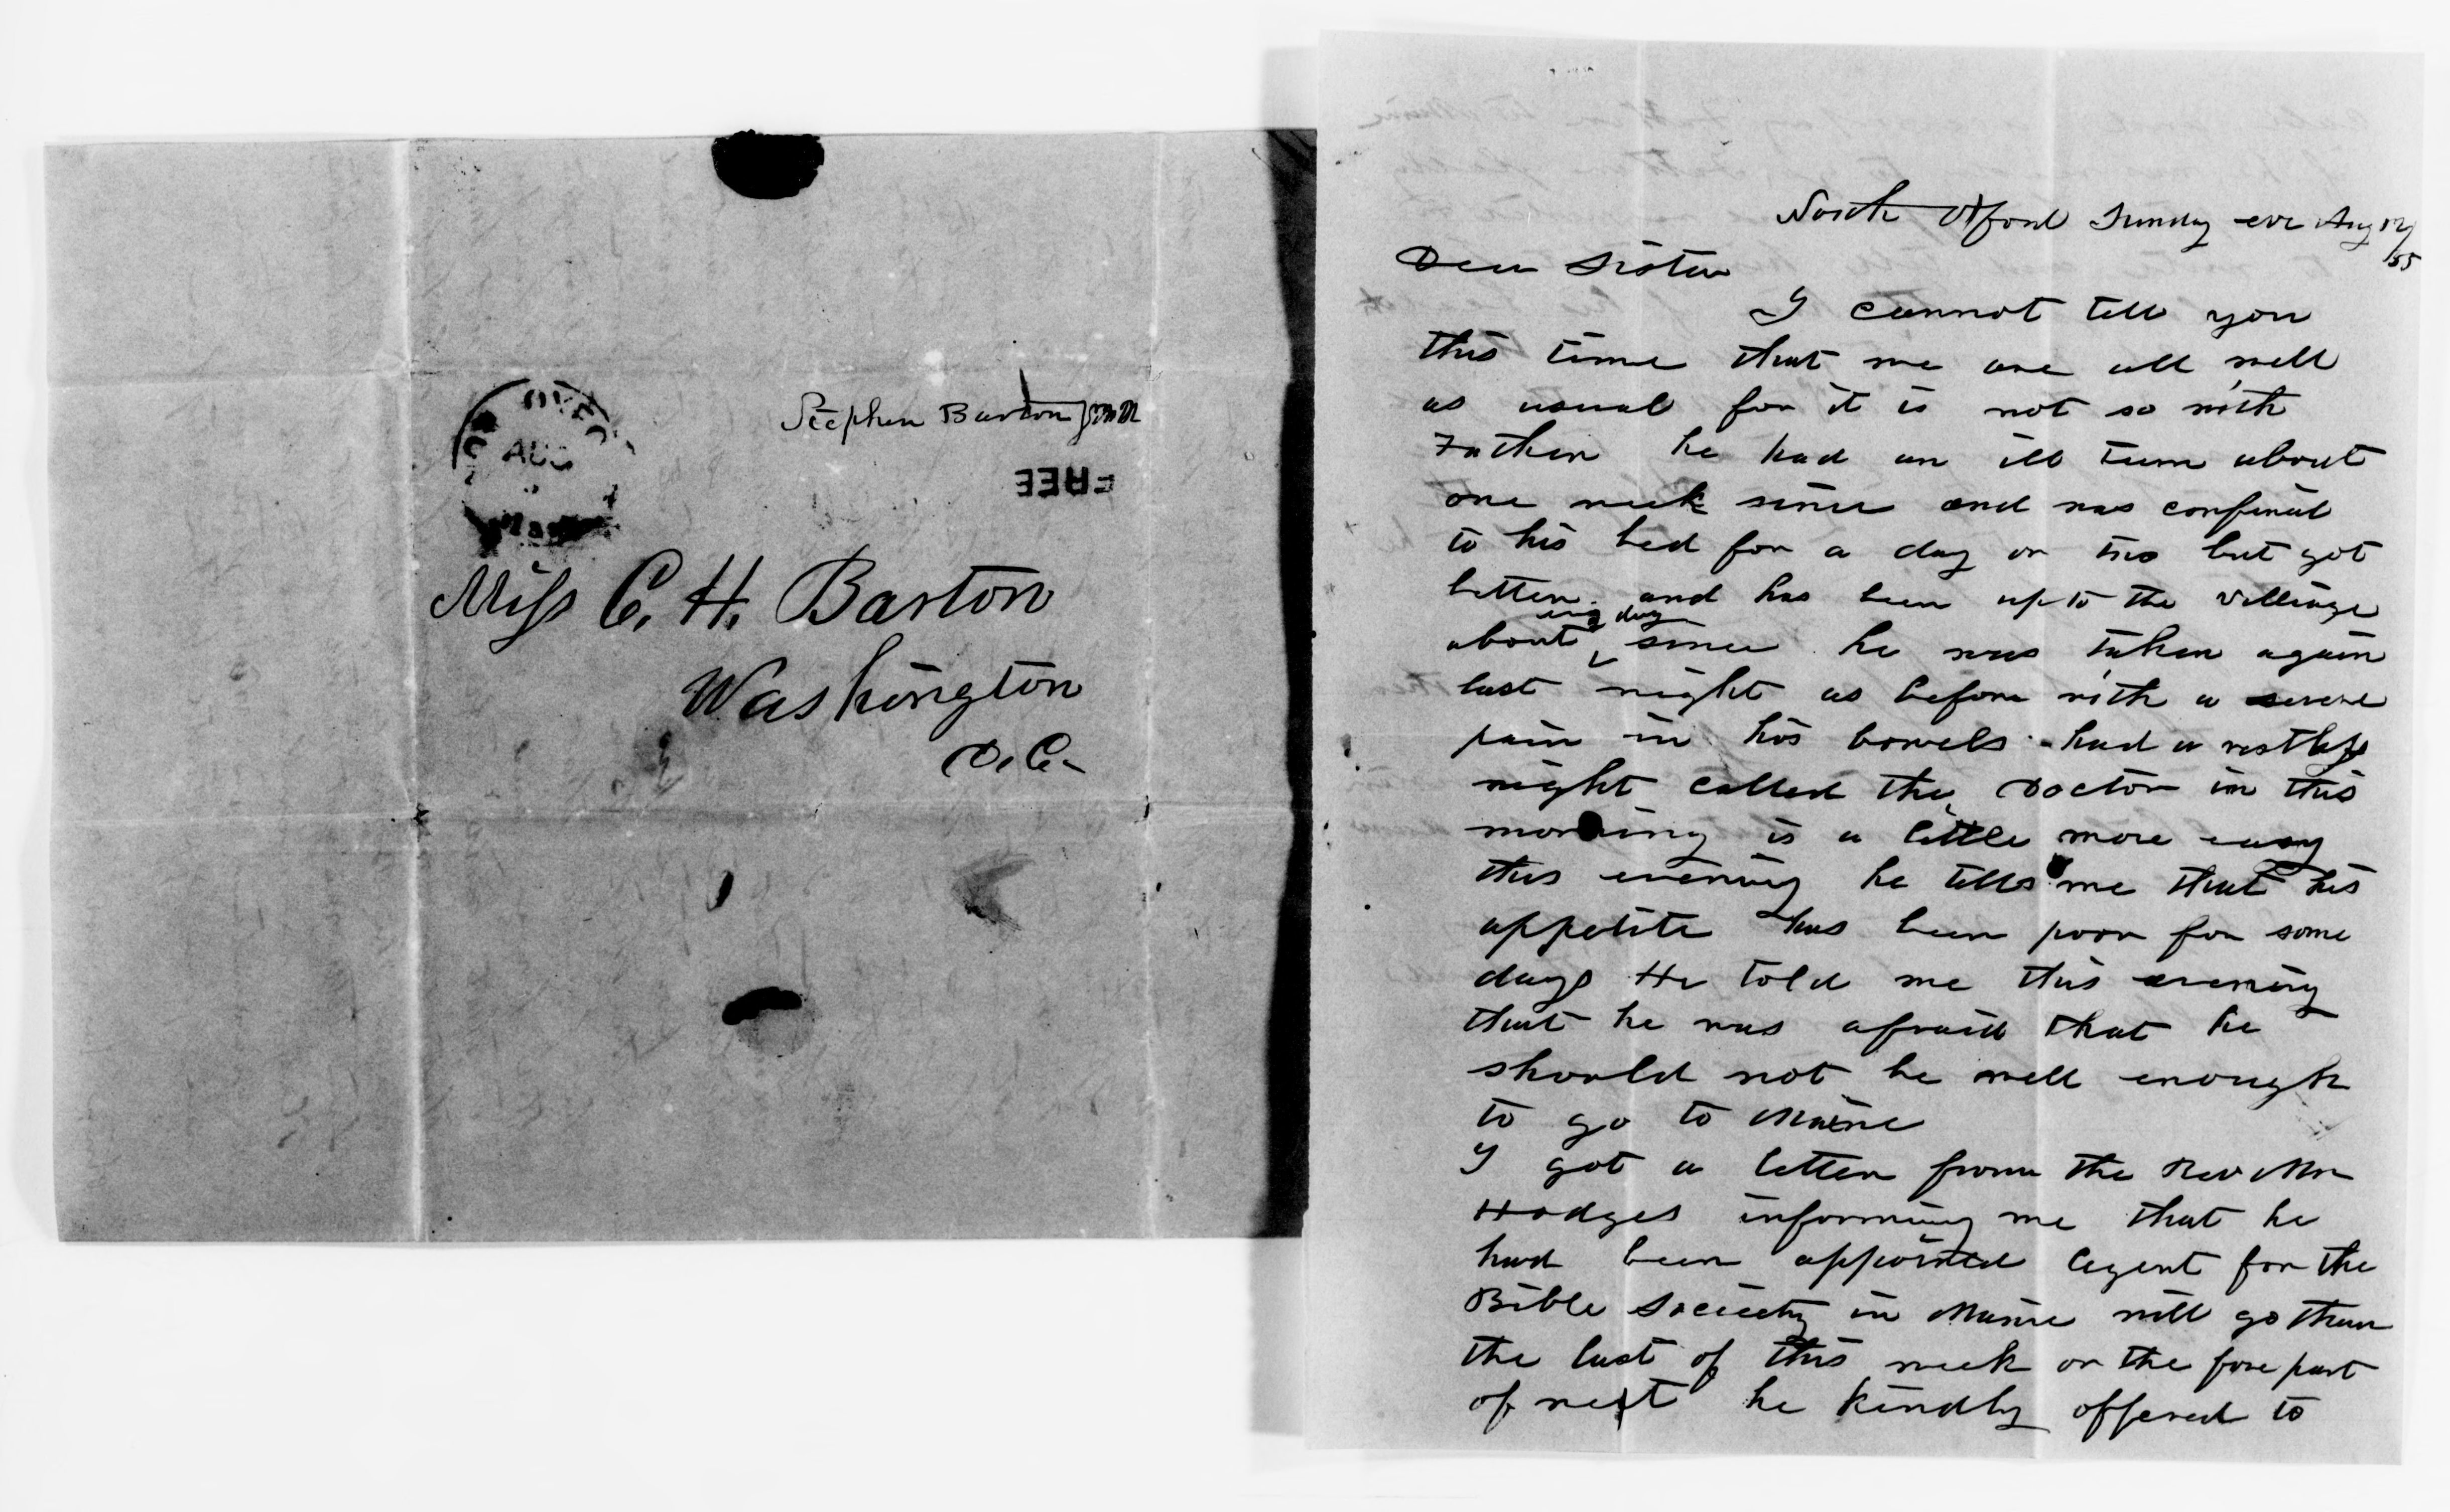 AUG
Stephen Barton Jr P M
FREE
Miss C. H. Barton
Washington
D. C.
North Oxford Sunday eve Aug 12/55
Dear Sister
I cannot tell you
this time that we are all well
as usual for it is not so with
Father he had an ill turn about
one week since and was confined
to his bed for a day or two but got
better and has been up to the villiage
about evry day since he was taken again
last night as before with a severe
pain in his bowels had a restless
night called the Doctor in this
morning is a little more easy
this evening he tells me that his
appetite has been poor for some
days He told me this evening
that he was afraid that he
should not be well enough
to go to Maine
I got a letter from the Rev Mr
Hodges informing me that he
had been appointed Agent for the
Bible Socieety in Maine will go there
the last of this week or the fore part
of next he kindly offered to